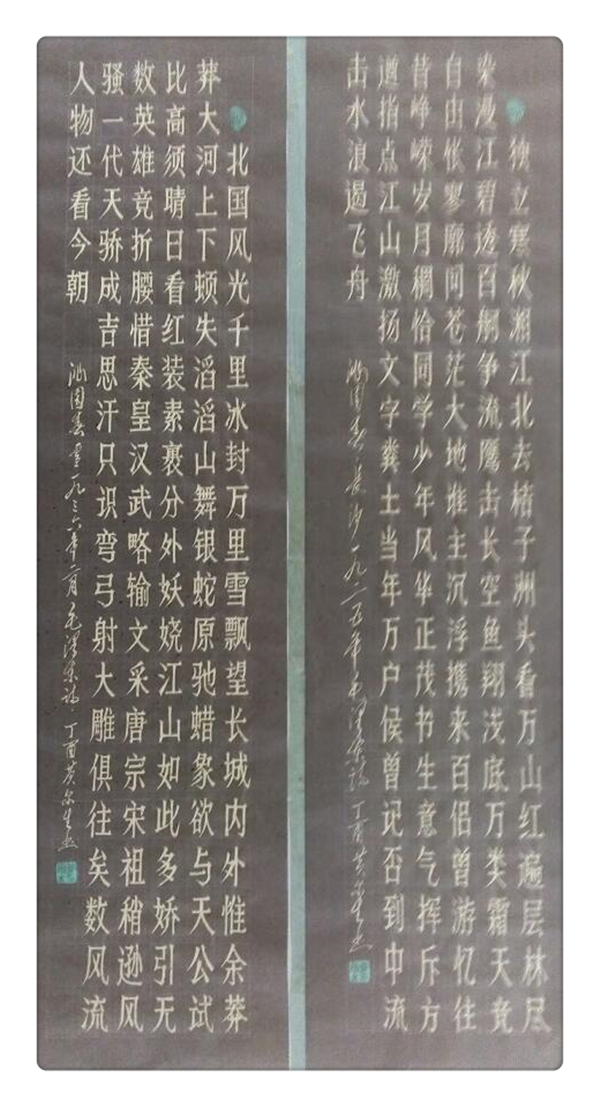 独立寒秋湘江北去桔子洲头看万山红遍层林尽
染漫江碧透百舸争流鹰击长空鱼翔浅底万类霜天竞
自由怅寥廓问苍茫大地谁主沉浮携来百侣曾游忆往
昔峥嵘岁月稠恰同学少年风华正茂书生意气挥斥方
遒指点江山激扬文字粪土当年万户侯曾记否到中流
击水浪遏飞舟 沁园春 长沙 一九二五年 毛泽东词 丁酉
北国风光千里冰封万里雪飘望长城内外惟余莽
莽大河上下顿失滔滔山舞银蛇原驰蜡象欲与天公试
比高须晴日看红装素裹分外妖娆江山如此多娇引无
数英雄竞折腰惜秦皇汉武略输文采唐宗宋祖稍逊风
骚一代天骄成吉思汗只识弯弓射大雕俱往矣数风流
人物还看今朝 沁园春 雪 一九三六年二月 毛泽东词 丁酉